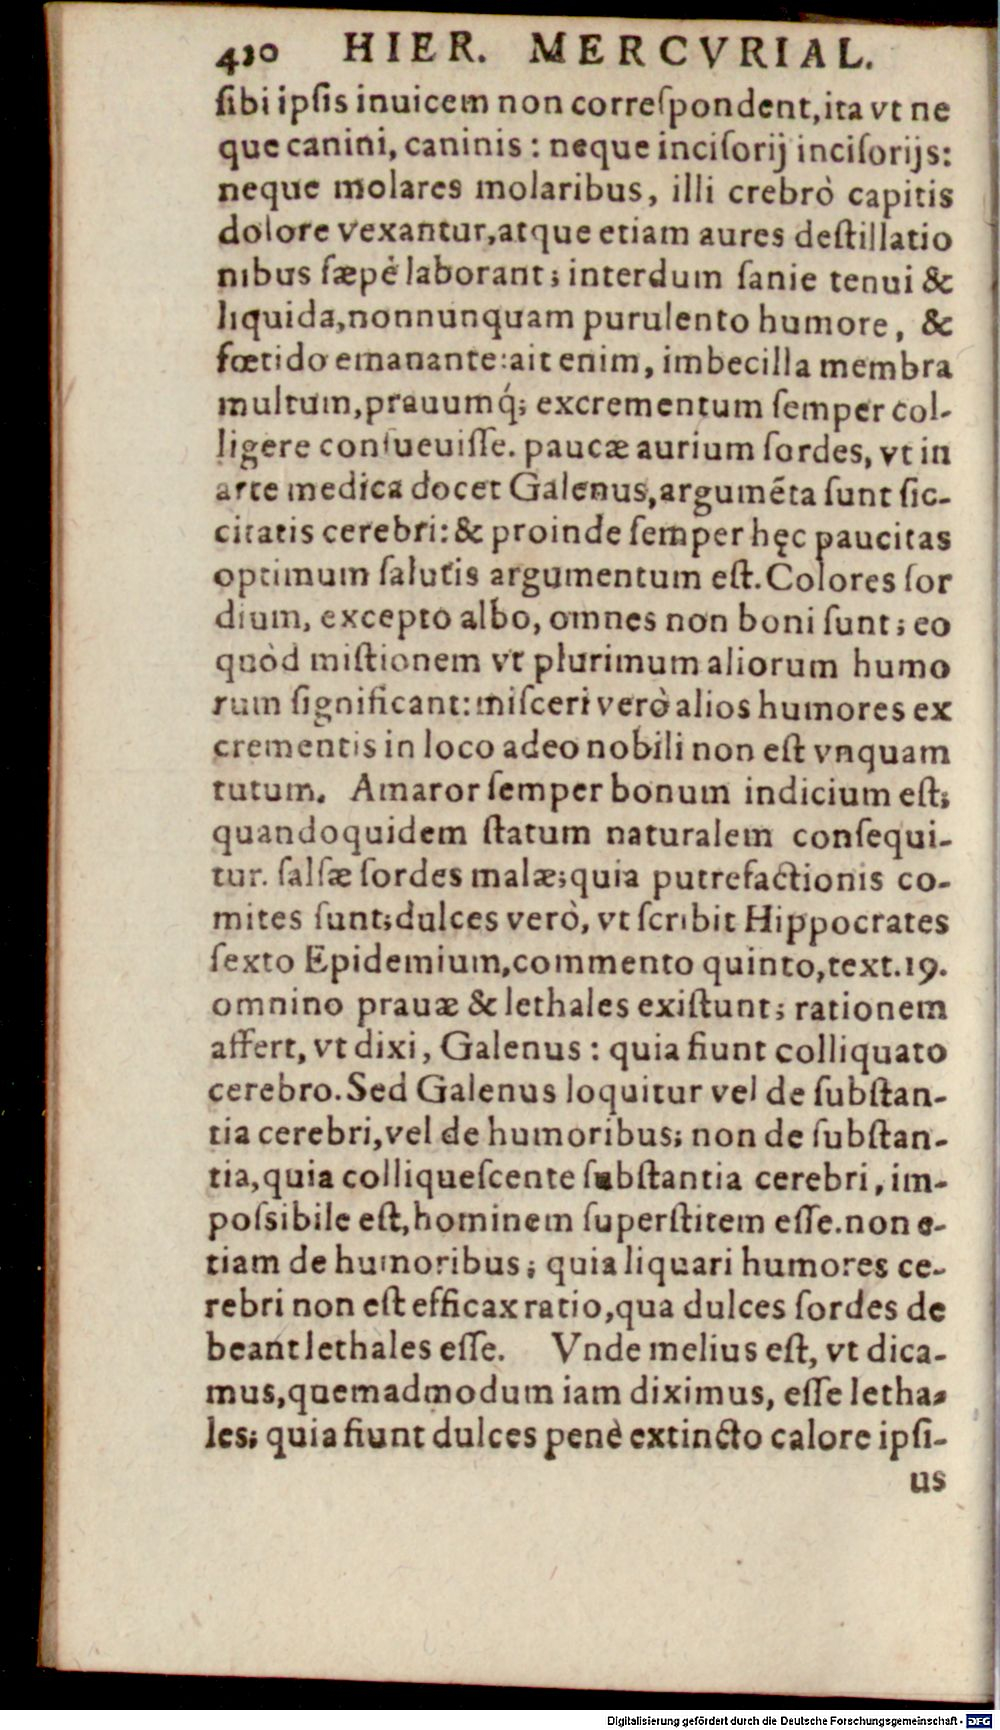 410 HIER. MERCVRIAL.
ſibi ipſis inuicem non correſpondent, ita vt ne
que canini, caninis : neque inciſorij inciſorijs:
neque molares molaribus, illi crebrò capitis
dolore vexantur, atque etiam aures deſtillatio
nibus ſæpè laborant; interdum ſanie tenui &
liquida, nonnunquam purulento humore, &
fœtido emanante: ait enim, imbecilla membra
multum, prauumq́; excrementum ſemper col-
ligere conſueuiſſe. paucæ aurium ſordes, vt in
arte medica docet Galenus, argumēta ſunt ſic-
citatis cerebri: & proinde ſemper hęc paucitas
optimum ſalutis argumentum eſt. Colores ſor
dium, excepto albo, omnes non boni ſunt; eo
quòd miſtionem vt plurimum aliorum humo
rum ſignificant: miſceri verò alios humores ex
crementis in loco adeo nobili non eſt vnquam
tutum. Amaror ſemper bonum indicium eſt;
quandoquidem ſtatum naturalem conſequi-
tur. ſalſæ ſordes malæ; quia putrefactionis co-
mites ſunt; dulces verò, vt ſcribit Hippocrates
ſexto Epidemium, commento quinto, text. 19.
omnino prauæ & lethales exiſtunt; rationem
affert, vt dixi, Galenus : quia fiunt colliquato
cerebro. Sed Galenus loquitur vel de ſubſtan-
tia cerebri, vel de humoribus; non de ſubſtan-
tia, quia colliqueſcente ſubſtantia cerebri, im-
poſsibile eſt, hominem ſuperſtitem eſſe. non e-
tiam de humoribus; quia liquari humores ce-
rebri non eſt efficax ratio, qua dulces ſordes de
beant lethales eſſe. Vnde melius eſt, vt dica-
mus, quemadmodum iam diximus, eſſe letha-
les; quia fiunt dulces penè extincto calore ipſi-
us
Digitalisierung gefördert durch die Deutsche Forschungsgemeinschaft - DFG